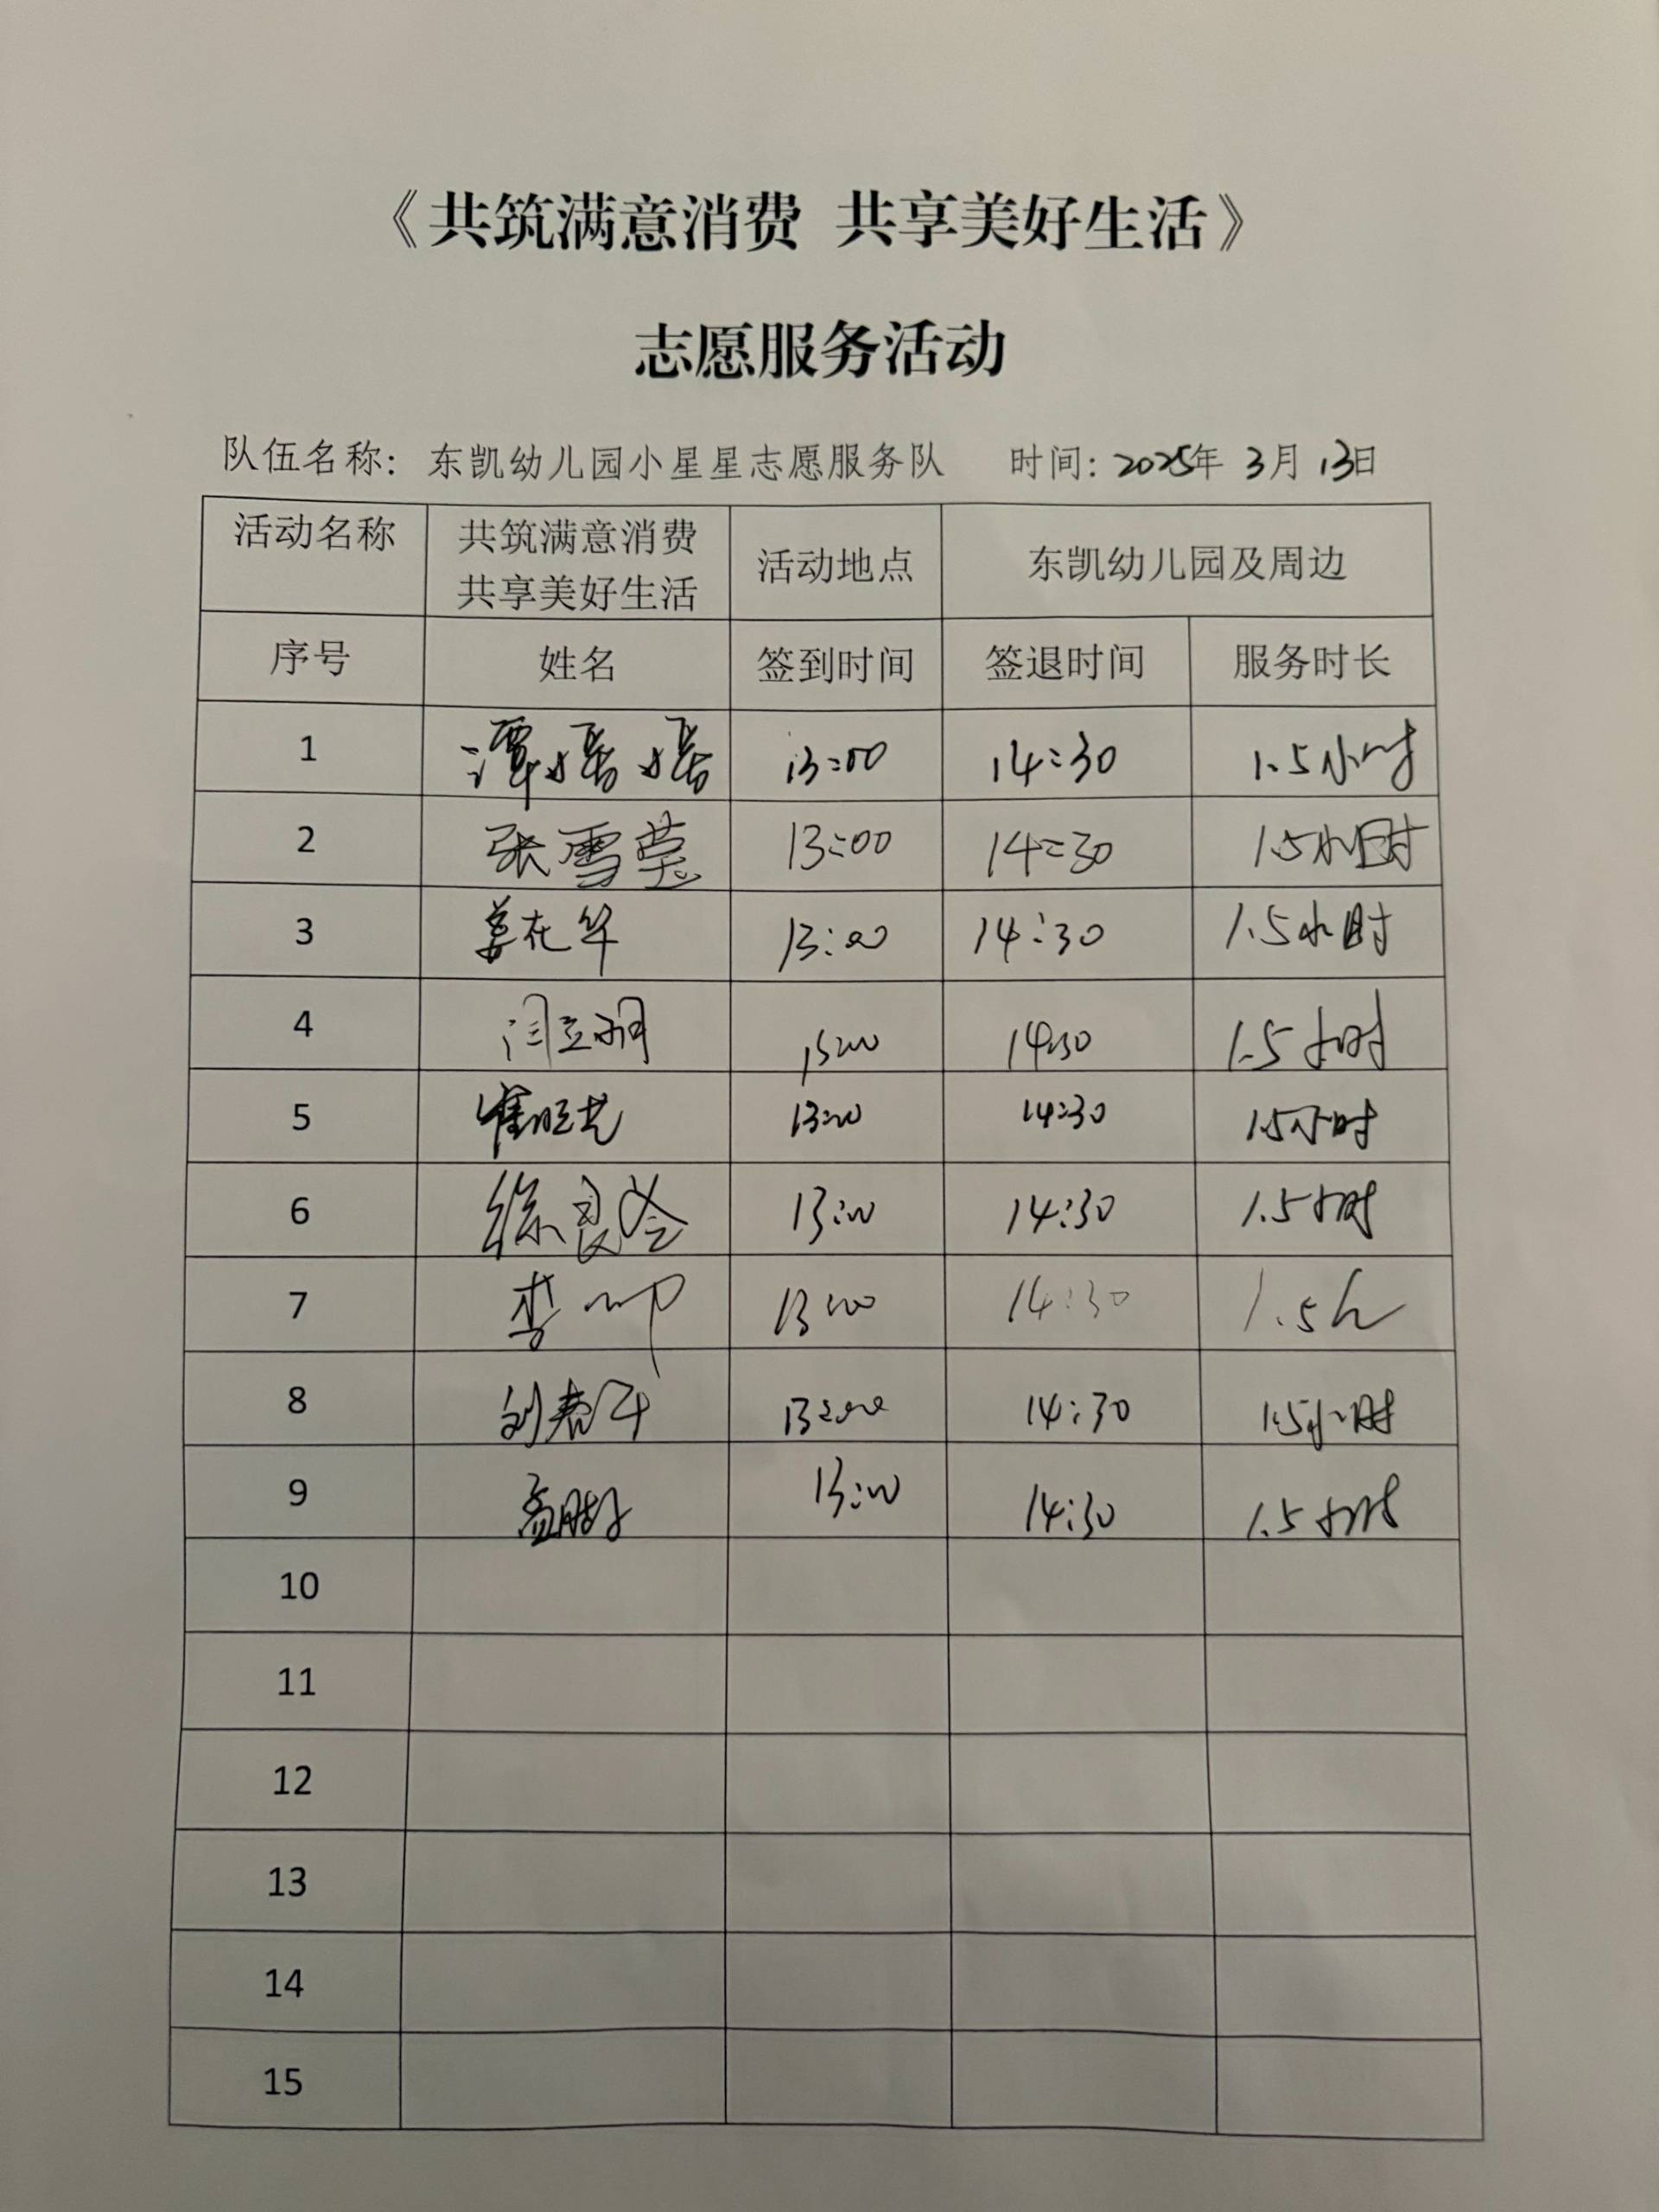 《共筑满意消费 共享美好生活》
志愿服务活动
队伍名称：东凯幼儿园小星星志愿服务队 时间：2025年 3月 13日
活动名称 共筑满意消费 共享美好生活 活动地点 东凯幼儿园及周边
序号 姓名 签到时间 签退时间 服务时长
1 谭 13:00 14:30 1.5小时
2 张雪莹 13:00 14:30 1.5小时
3 姜在华 13:00 14:30 1.5小时
4 闫立 13:00 14:30 1.5小时
5 崔 13:00 14:30 1.5小时
6 徐良 13:00 14:30 1.5小时
7 李 13:00 14:30 1.5h
8 刘春 13:00 14:30 1.5小时
9 孟 13:00 14:30 1.5小时
10
11
12
13
14
15